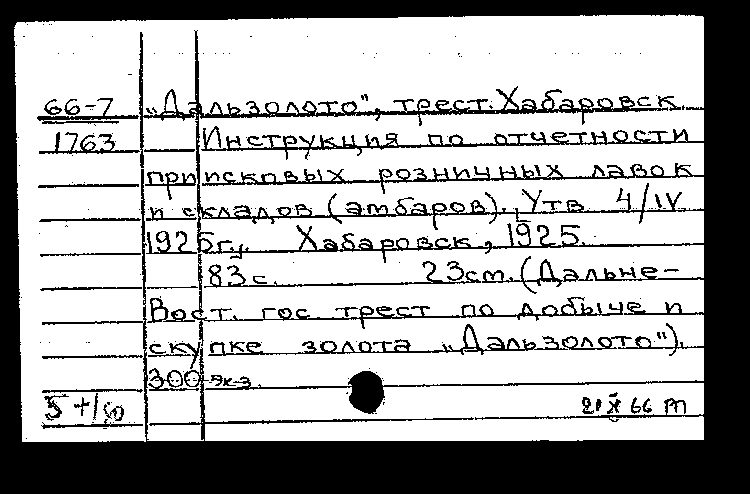 66-7 „Дальзолото", трест. Хабаровск
1763 Инструкция по отчетности
приисковых розничных лавок
и складов (амбаров)., Утв 4/IV
1925г., Хабаровск, 1925.
83с. 23см. (Дальне-
Вост. гос. трест по добыче и
скупке золота „Дальзолото").
300 экз.
21 X 66